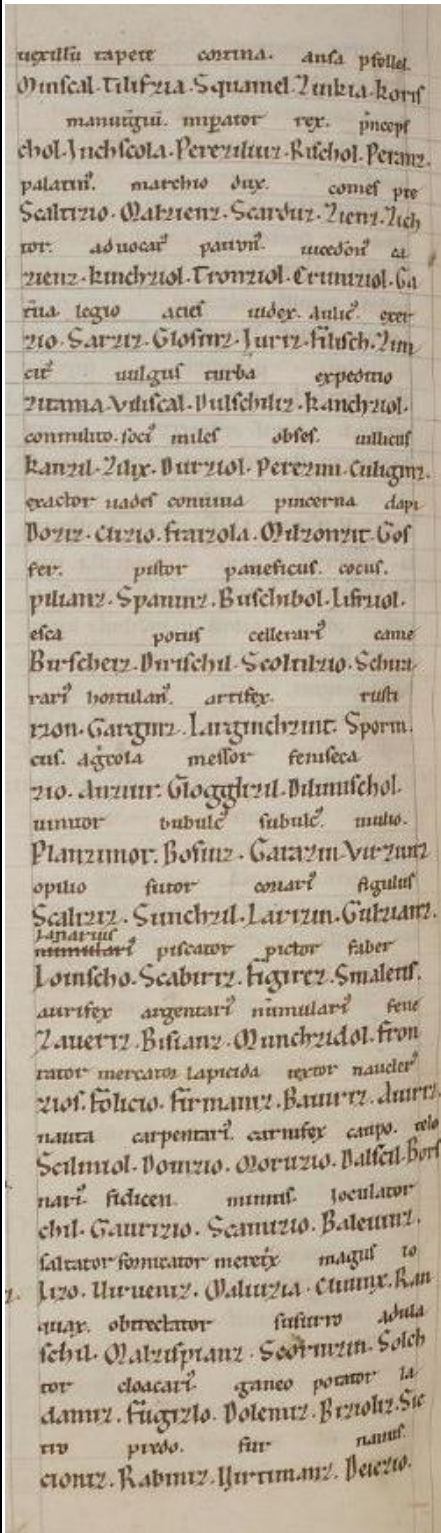 uexillũ tapete cortina. ansa psellel
Minscal. Tilifzia. Squamel. Zuikia. koris
manutigiũ. impator rex. pinceps
chol. Inchscola. Pereziliuz. Rischol. Peranz.
palatinꝰ. marchio dux. comes pre
Scaltizio. Malzienz. Scarduz. Zienz. Zich
tor. aduocatꝰ patronꝰ. uicedonꝰ ca
zienz. kinchziol. Tronziol. Crumziol. Ga
rũa legio acies iudex. aulicꝰ. exer
zio. Sarziz. Glosinz. Juriz. filisch. Zun
citꝰ uulgus turba expeditio
zitama. Viliscal. Vulschiliz. kanchziol.
conmilito. sociꝰ miles obses. uillicus
kanzil. Zilix. Durziol. Perezinn. Culiginz.
exactor uades conuiua pincerna dapi
Doziz. Ctizio. fraizola. Milzonzit. Gos
fer. pistor paneficus. cocus.
pilianz. Spaninz. Buschibol. Lifruol.
esca potus cellerariꝰ came
Birscheiz. Dirischil. Scoltilzio. Schua
rariꝰ hortulanꝰ. artifex. rusti
rzon. Garginz. Larginchzint. Sporin.
cus. agͥcola messor feniseca
zio. Auziur. Gloggkzil. Dilunischol.
uinitor bubulcꝰ subulcꝰ. mulio.
Planzimor. Bosinz. Garazin. Virzunz
opilio sutor coriariꝰ figulus
Scalziz. Sunchzil. Larizin. Gulzianz.
lanarius
numulariꝰ piscator pictor faber
Loinscho. Scabiriz. figirez. Smaletis.
aurifex argentariꝰ nũmulariꝰ fene
Zaueriz. Bisianz. Munchzidol. fron
rator mercator lapicida textor nauclerꝰ
zios. folicio. firmaniz. Bauuriz. Auiriz
nauta carpentariꝰ. carnifex caupo. telo
Scilimiol. Domzio. Moruzio. Dalscil. Bors
nariꝰ fidicen. mimus. joculator
chil. Gaurizio. Scamizio. Baleuinz.
saltator fornicator meretͥx magus lo
Jizo. Uirueniz. Maluizia. Ctiuinx. Ran
quax. obtrectator susurro adula
schil. Malzispianz. Scorinzin. Solch
tor cloacariꝰ. ganeo potator la
damiz. fugizlo. Dolemiz. Bizioliz. Sic
tro predo. fur nanus.
cioniz. Rabiniz. Uirtimanz. Deiezio.